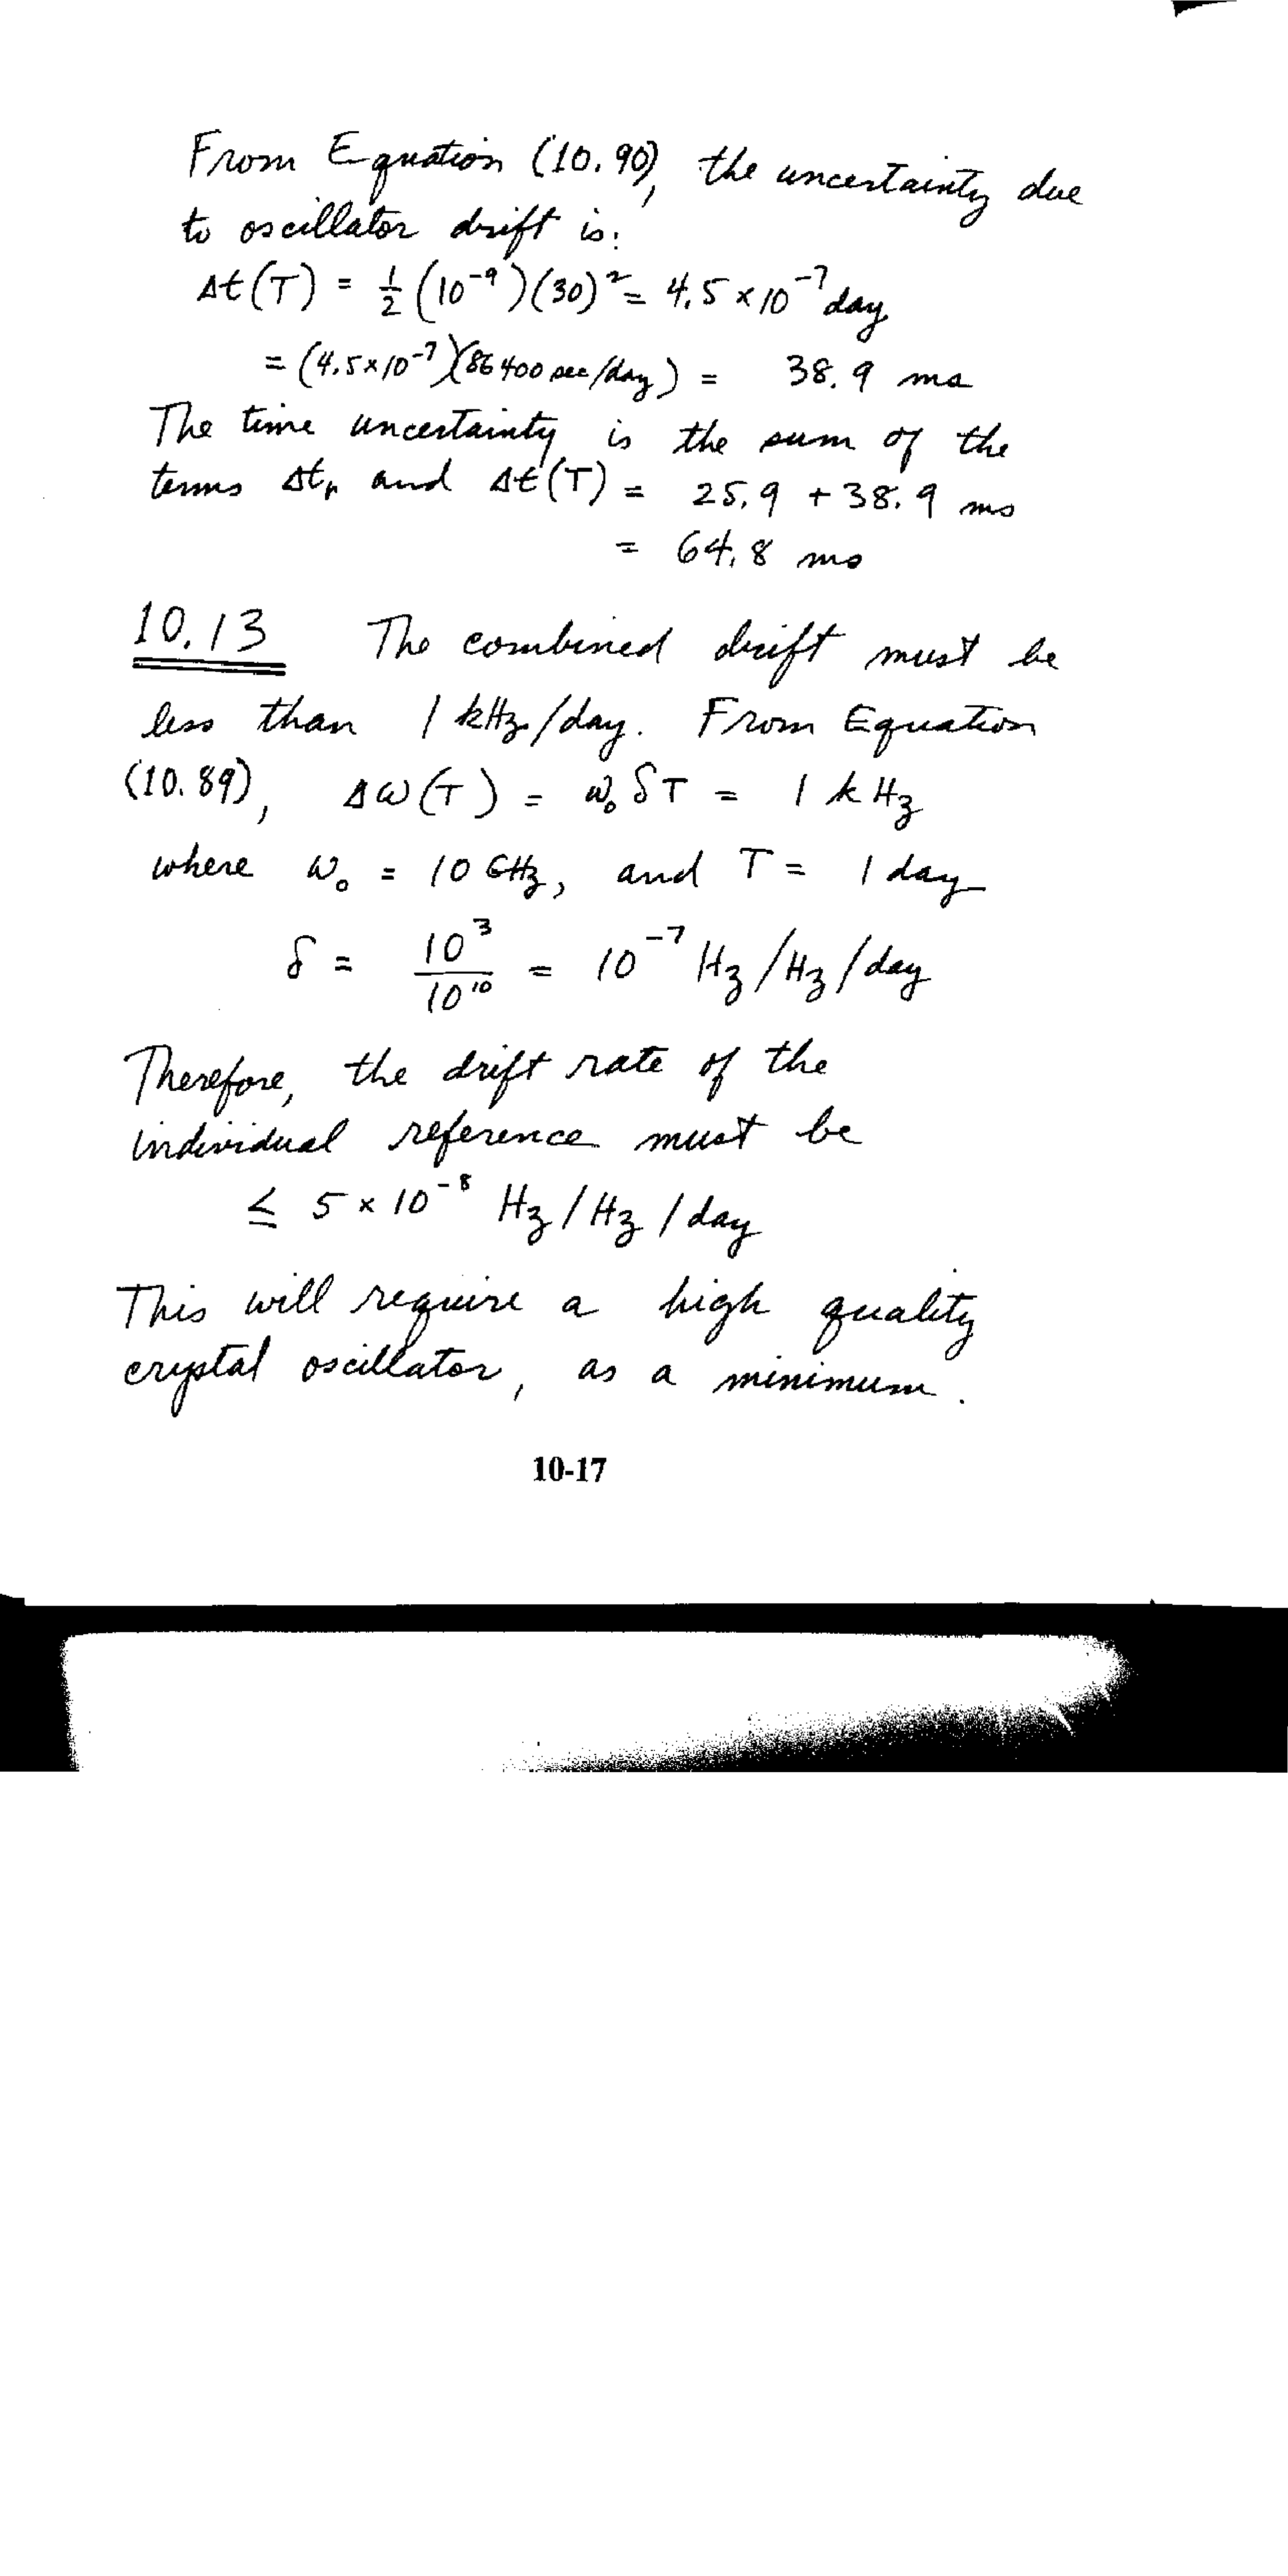 From Equation (10.90), the uncertainty due
to oscillator drift is:
Δt(T) = ½ (10⁻⁹)(30)² = 4.5 × 10⁻⁷ day
= (4.5×10⁻⁷)(86400 sec/day) = 38.9 ms
The time uncertainty is the sum of the
terms Δtᵣ and Δt(T) = 25.9 + 38.9 ms
= 64.8 ms
10.13 The combined drift must be
less than 1 kHz/day. From Equation
(10.89), Δω(T) = ω₀ δT = 1 kHz
where ω₀ = 10 GHz, and T = 1 day
δ = 10³/10¹⁰ = 10⁻⁷ Hz/Hz/day
Therefore, the drift rate of the
individual reference must be
≤ 5 × 10⁻⁸ Hz/Hz/day
This will require a high quality
crystal oscillator, as a minimum.
10-17